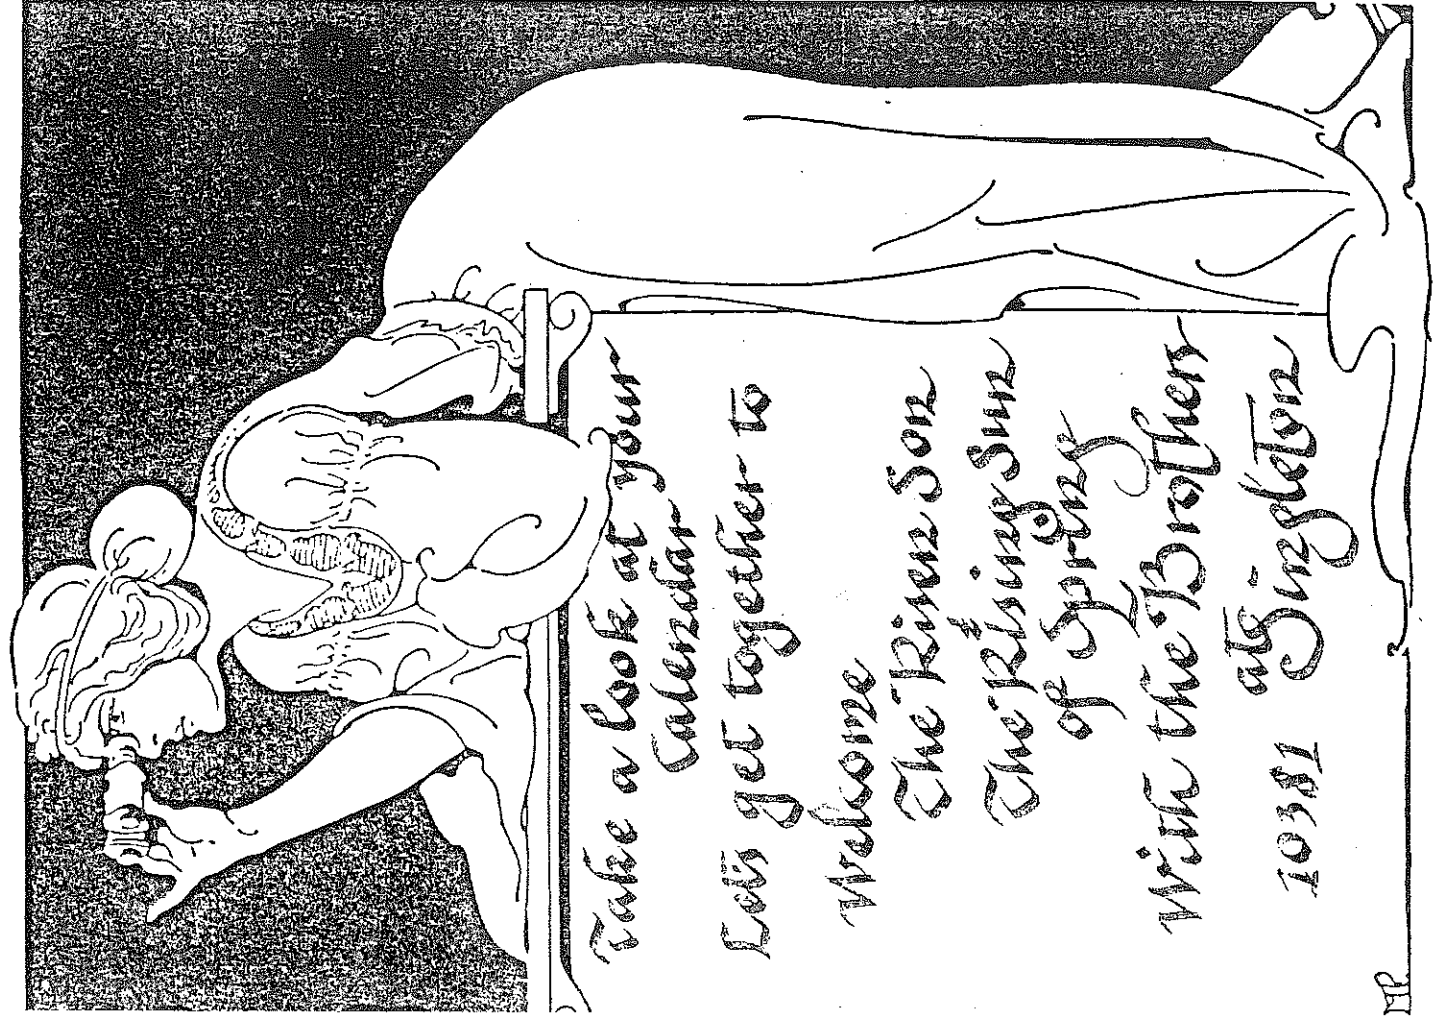 Take a look at your
Calendar
Let's get together to
Welcome
The Risen Son
The Rising Sun
of Spring
With the Brothers
at
10381 Singleton